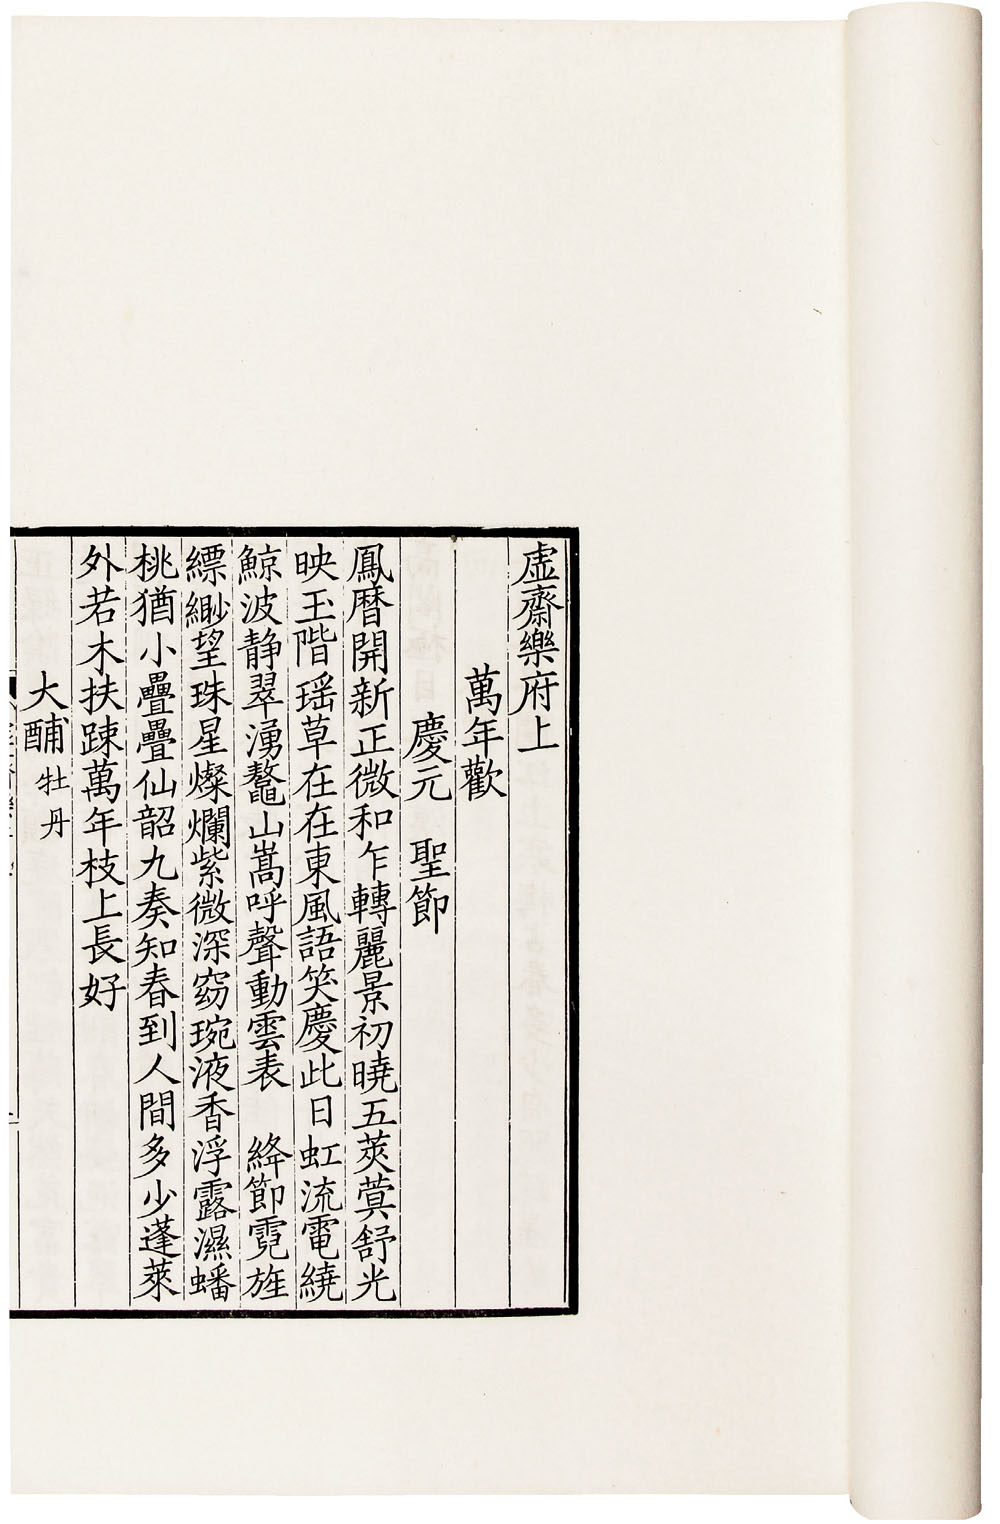 虚齋樂府上
萬年歡
慶元　聖節
鳳曆開新正微和乍轉麗景初曉五莢蓂舒光
映玉階瑶草在在東風語笑慶此日虹流電繞
鯨波静翠湧鼇山嵩呼聲動雲表　絳節霓旌
縹緲望珠星燦爛紫微深窈琬液香浮露濕蟠
桃猶小疊疊仙韶九奏知春到人間多少蓬萊
外若木扶踈萬年枝上長好
大酺牡丹